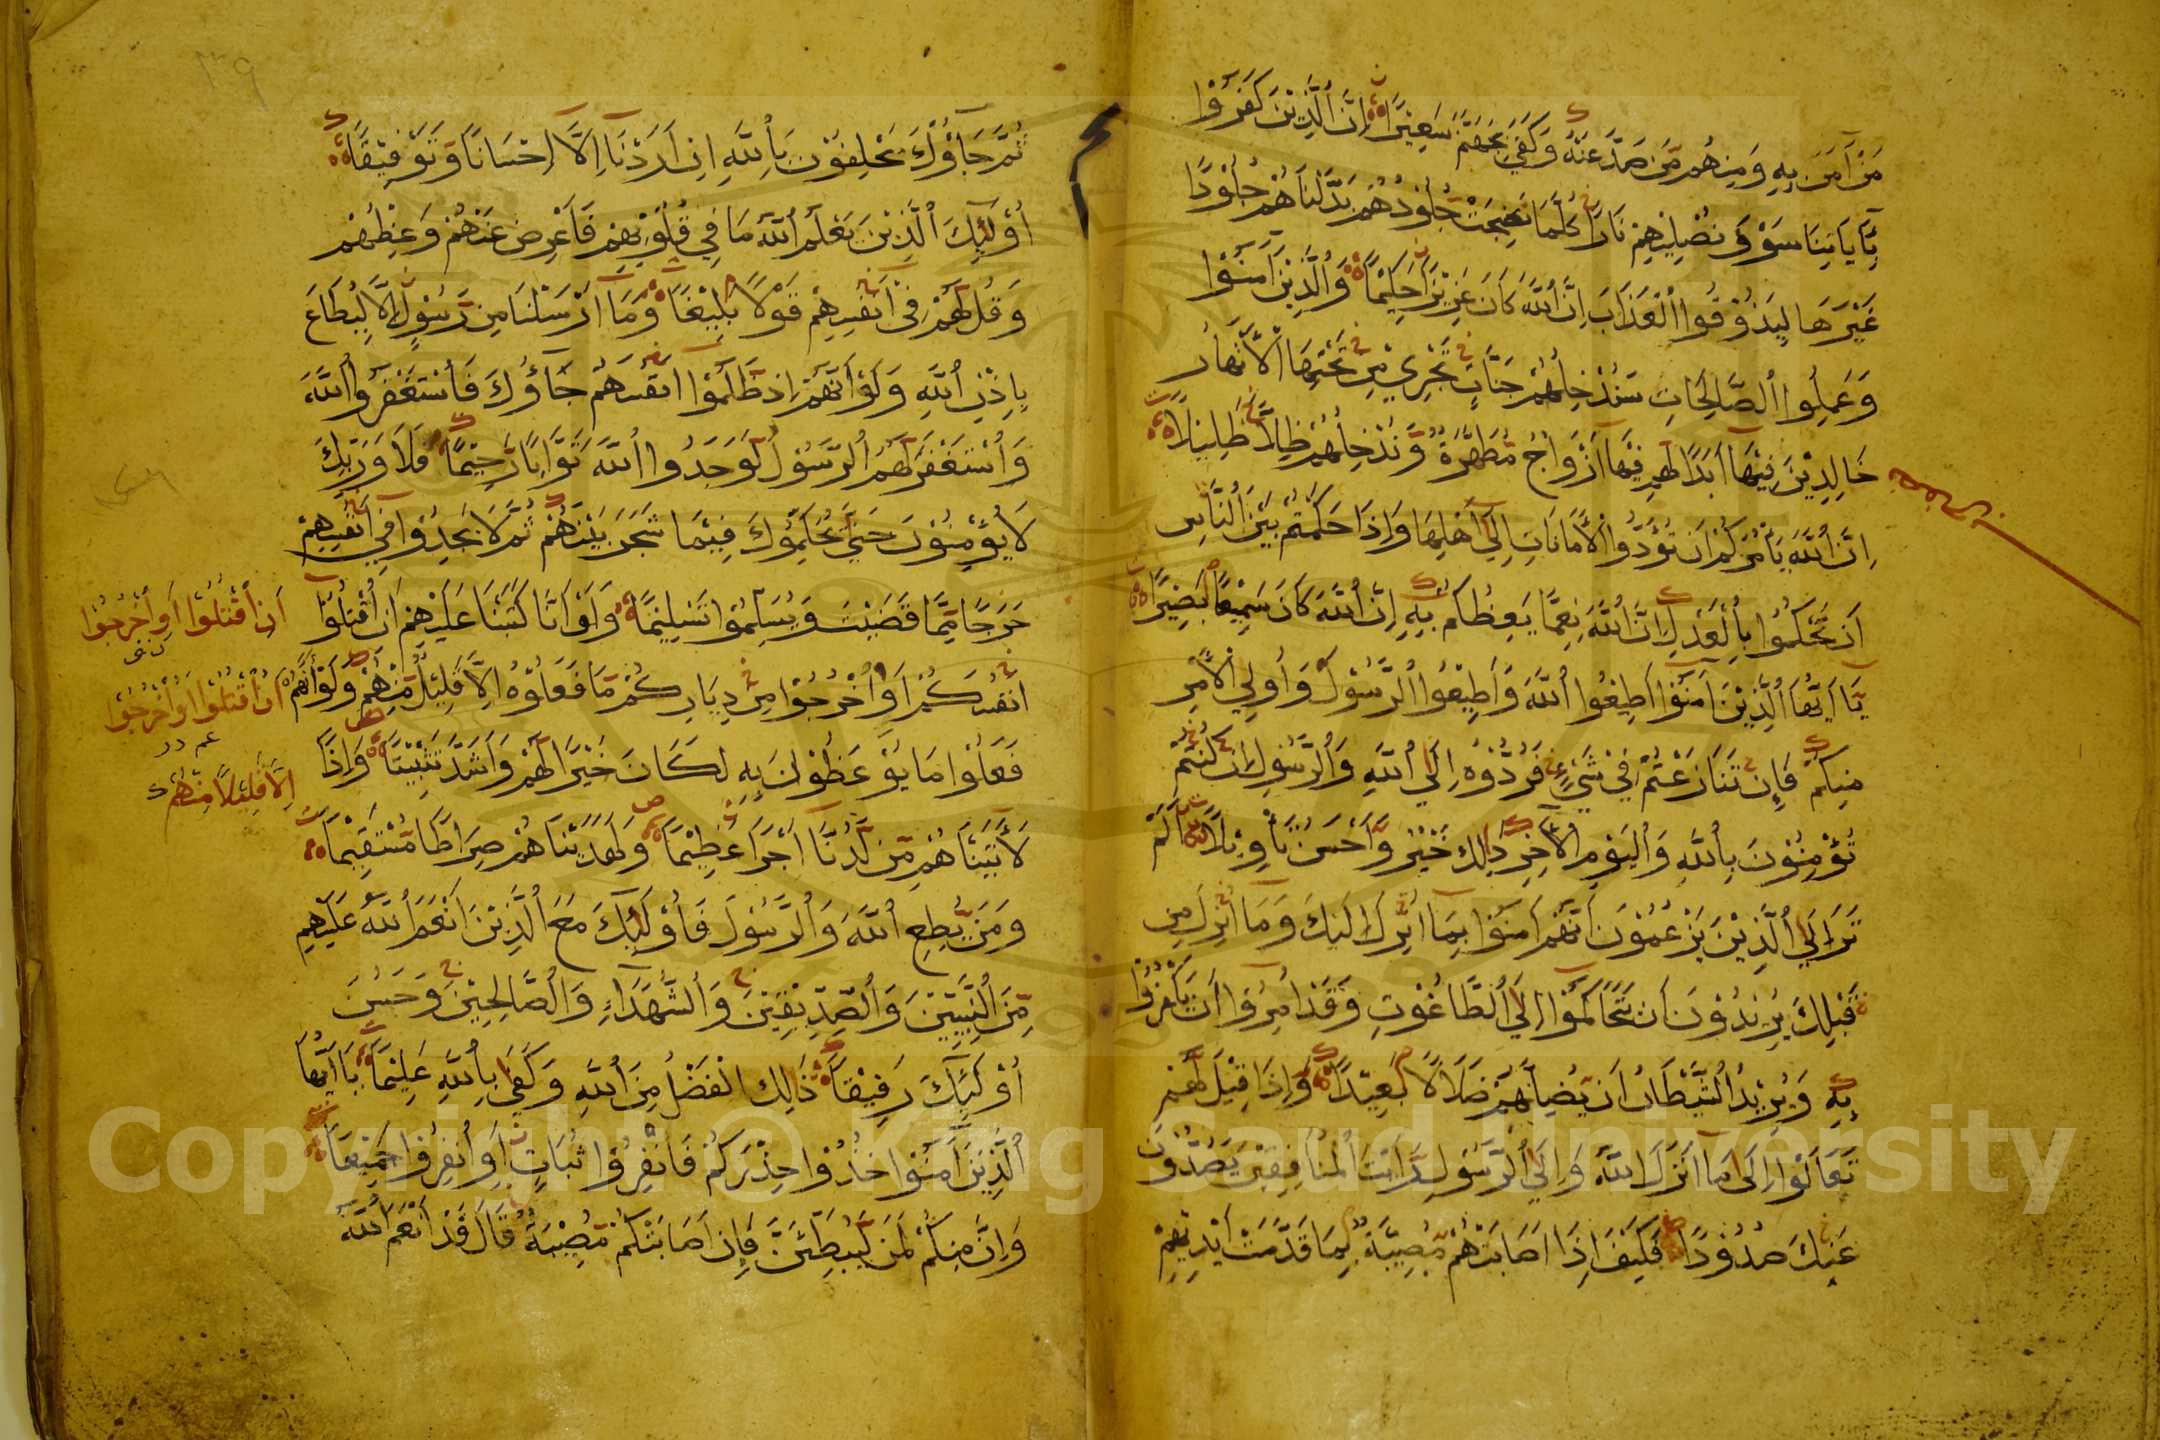 مَنْ آمَنَ بِهِ وَمِنْهُم مَّن صَدَّ عَنْهُ وَكَفَىٰ بِجَهَنَّمَ سَعِيرًا إِنَّ ٱلَّذِينَ كَفَرُوا
بِآيَاتِنَا سَوْفَ نُصْلِيهِمْ نَارًا كُلَّمَا نَضِجَتْ جُلُودُهُم بَدَّلْنَاهُمْ جُلُودًا
غَيْرَهَا لِيَذُوقُوا ٱلْعَذَابَ إِنَّ ٱللَّهَ كَانَ عَزِيزًا حَكِيمًا وَٱلَّذِينَ آمَنُوا
وَعَمِلُوا ٱلصَّالِحَاتِ سَنُدْخِلُهُمْ جَنَّاتٍ تَجْرِي مِن تَحْتِهَا ٱلْأَنْهَارُ
خَالِدِينَ فِيهَا أَبَدًا لَهُمْ فِيهَا أَزْوَاجٌ مُطَهَّرَةٌ وَنُدْخِلُهُمْ ظِلًّا ظَلِيلًا
إِنَّ ٱللَّهَ يَأْمُرُكُمْ أَن تُؤَدُّوا ٱلْأَمَانَاتِ إِلَىٰ أَهْلِهَا وَإِذَا حَكَمْتُمْ بَيْنَ ٱلنَّاسِ
أَن تَحْكُمُوا بِٱلْعَدْلِ إِنَّ ٱللَّهَ نِعِمَّا يَعِظُكُم بِهِ إِنَّ ٱللَّهَ كَانَ سَمِيعًا بَصِيرًا
يَا أَيُّهَا ٱلَّذِينَ آمَنُوا أَطِيعُوا ٱللَّهَ وَأَطِيعُوا ٱلرَّسُولَ وَأُولِي ٱلْأَمْرِ
مِنكُمْ فَإِن تَنَازَعْتُمْ فِي شَيْءٍ فَرُدُّوهُ إِلَى ٱللَّهِ وَٱلرَّسُولِ إِن كُنتُمْ
تُؤْمِنُونَ بِٱللَّهِ وَٱلْيَوْمِ ٱلْآخِرِ ذَٰلِكَ خَيْرٌ وَأَحْسَنُ تَأْوِيلًا أَلَمْ
تَرَ إِلَى ٱلَّذِينَ يَزْعُمُونَ أَنَّهُمْ آمَنُوا بِمَا أُنزِلَ إِلَيْكَ وَمَا أُنزِلَ مِن
قَبْلِكَ يُرِيدُونَ أَن يَتَحَاكَمُوا إِلَى ٱلطَّاغُوتِ وَقَدْ أُمِرُوا أَن يَكْفُرُوا
بِهِ وَيُرِيدُ ٱلشَّيْطَانُ أَن يُضِلَّهُمْ ضَلَالًا بَعِيدًا وَإِذَا قِيلَ لَهُمْ
تَعَالَوْا إِلَىٰ مَا أَنزَلَ ٱللَّهُ وَإِلَى ٱلرَّسُولِ رَأَيْتَ ٱلْمُنَافِقِينَ يَصُدُّونَ
عَنكَ صُدُودًا فَكَيْفَ إِذَا أَصَابَتْهُمْ مُصِيبَةٌ بِمَا قَدَّمَتْ أَيْدِيهِمْ
٣٩
ثُمَّ جَاؤُوكَ يَحْلِفُونَ بِٱللَّهِ إِنْ أَرَدْنَا إِلَّا إِحْسَانًا وَتَوْفِيقًا
أُولَٰئِكَ ٱلَّذِينَ يَعْلَمُ ٱللَّهُ مَا فِي قُلُوبِهِمْ فَأَعْرِضْ عَنْهُمْ وَعِظْهُمْ
وَقُل لَّهُمْ فِي أَنفُسِهِمْ قَوْلًا بَلِيغًا وَمَا أَرْسَلْنَا مِن رَّسُولٍ إِلَّا لِيُطَاعَ
بِإِذْنِ ٱللَّهِ وَلَوْ أَنَّهُمْ إِذ ظَّلَمُوا أَنفُسَهُمْ جَاؤُوكَ فَٱسْتَغْفَرُوا ٱللَّهَ
وَٱسْتَغْفَرَ لَهُمُ ٱلرَّسُولُ لَوَجَدُوا ٱللَّهَ تَوَّابًا رَّحِيمًا فَلَا وَرَبِّكَ
لَا يُؤْمِنُونَ حَتَّىٰ يُحَكِّمُوكَ فِيمَا شَجَرَ بَيْنَهُمْ ثُمَّ لَا يَجِدُوا فِي أَنفُسِهِمْ
حَرَجًا مِّمَّا قَضَيْتَ وَيُسَلِّمُوا تَسْلِيمًا وَلَوْ أَنَّا كَتَبْنَا عَلَيْهِمْ أَنُ ٱقْتُلُوا
أَنفُسَكُمْ أَوُ ٱخْرُجُوا مِن دِيَارِكُم مَّا فَعَلُوهُ إِلَّا قَلِيلٌ مِّنْهُمْ وَلَوْ أَنَّهُمْ
فَعَلُوا مَا يُوعَظُونَ بِهِ لَكَانَ خَيْرًا لَّهُمْ وَأَشَدَّ تَثْبِيتًا وَإِذًا
لَّآتَيْنَاهُم مِّن لَّدُنَّا أَجْرًا عَظِيمًا وَلَهَدَيْنَاهُمْ صِرَاطًا مُّسْتَقِيمًا
وَمَن يُطِعِ ٱللَّهَ وَٱلرَّسُولَ فَأُولَٰئِكَ مَعَ ٱلَّذِينَ أَنْعَمَ ٱللَّهُ عَلَيْهِم
مِّنَ ٱلنَّبِيِّينَ وَٱلصِّدِّيقِينَ وَٱلشُّهَدَاءِ وَٱلصَّالِحِينَ وَحَسُنَ
أُولَٰئِكَ رَفِيقًا ذَٰلِكَ ٱلْفَضْلُ مِنَ ٱللَّهِ وَكَفَىٰ بِٱللَّهِ عَلِيمًا يَا أَيُّهَا
ٱلَّذِينَ آمَنُوا خُذُوا حِذْرَكُمْ فَٱنفِرُوا ثُبَاتٍ أَوِ ٱنفِرُوا جَمِيعًا
وَإِنَّ مِنكُمْ لَمَن لَّيُبَطِّئَنَّ فَإِنْ أَصَابَتْكُم مُّصِيبَةٌ قَالَ قَدْ أَنْعَمَ ٱللَّهُ
أَنِ ٱقْتُلُوا أَوِ ٱخْرُجُوا
أَنُ ٱقْتُلُوا أَوُ ٱخْرُجُوا
إِلَّا قَلِيلًا مِّنْهُمْ
Copyright © King Saud University